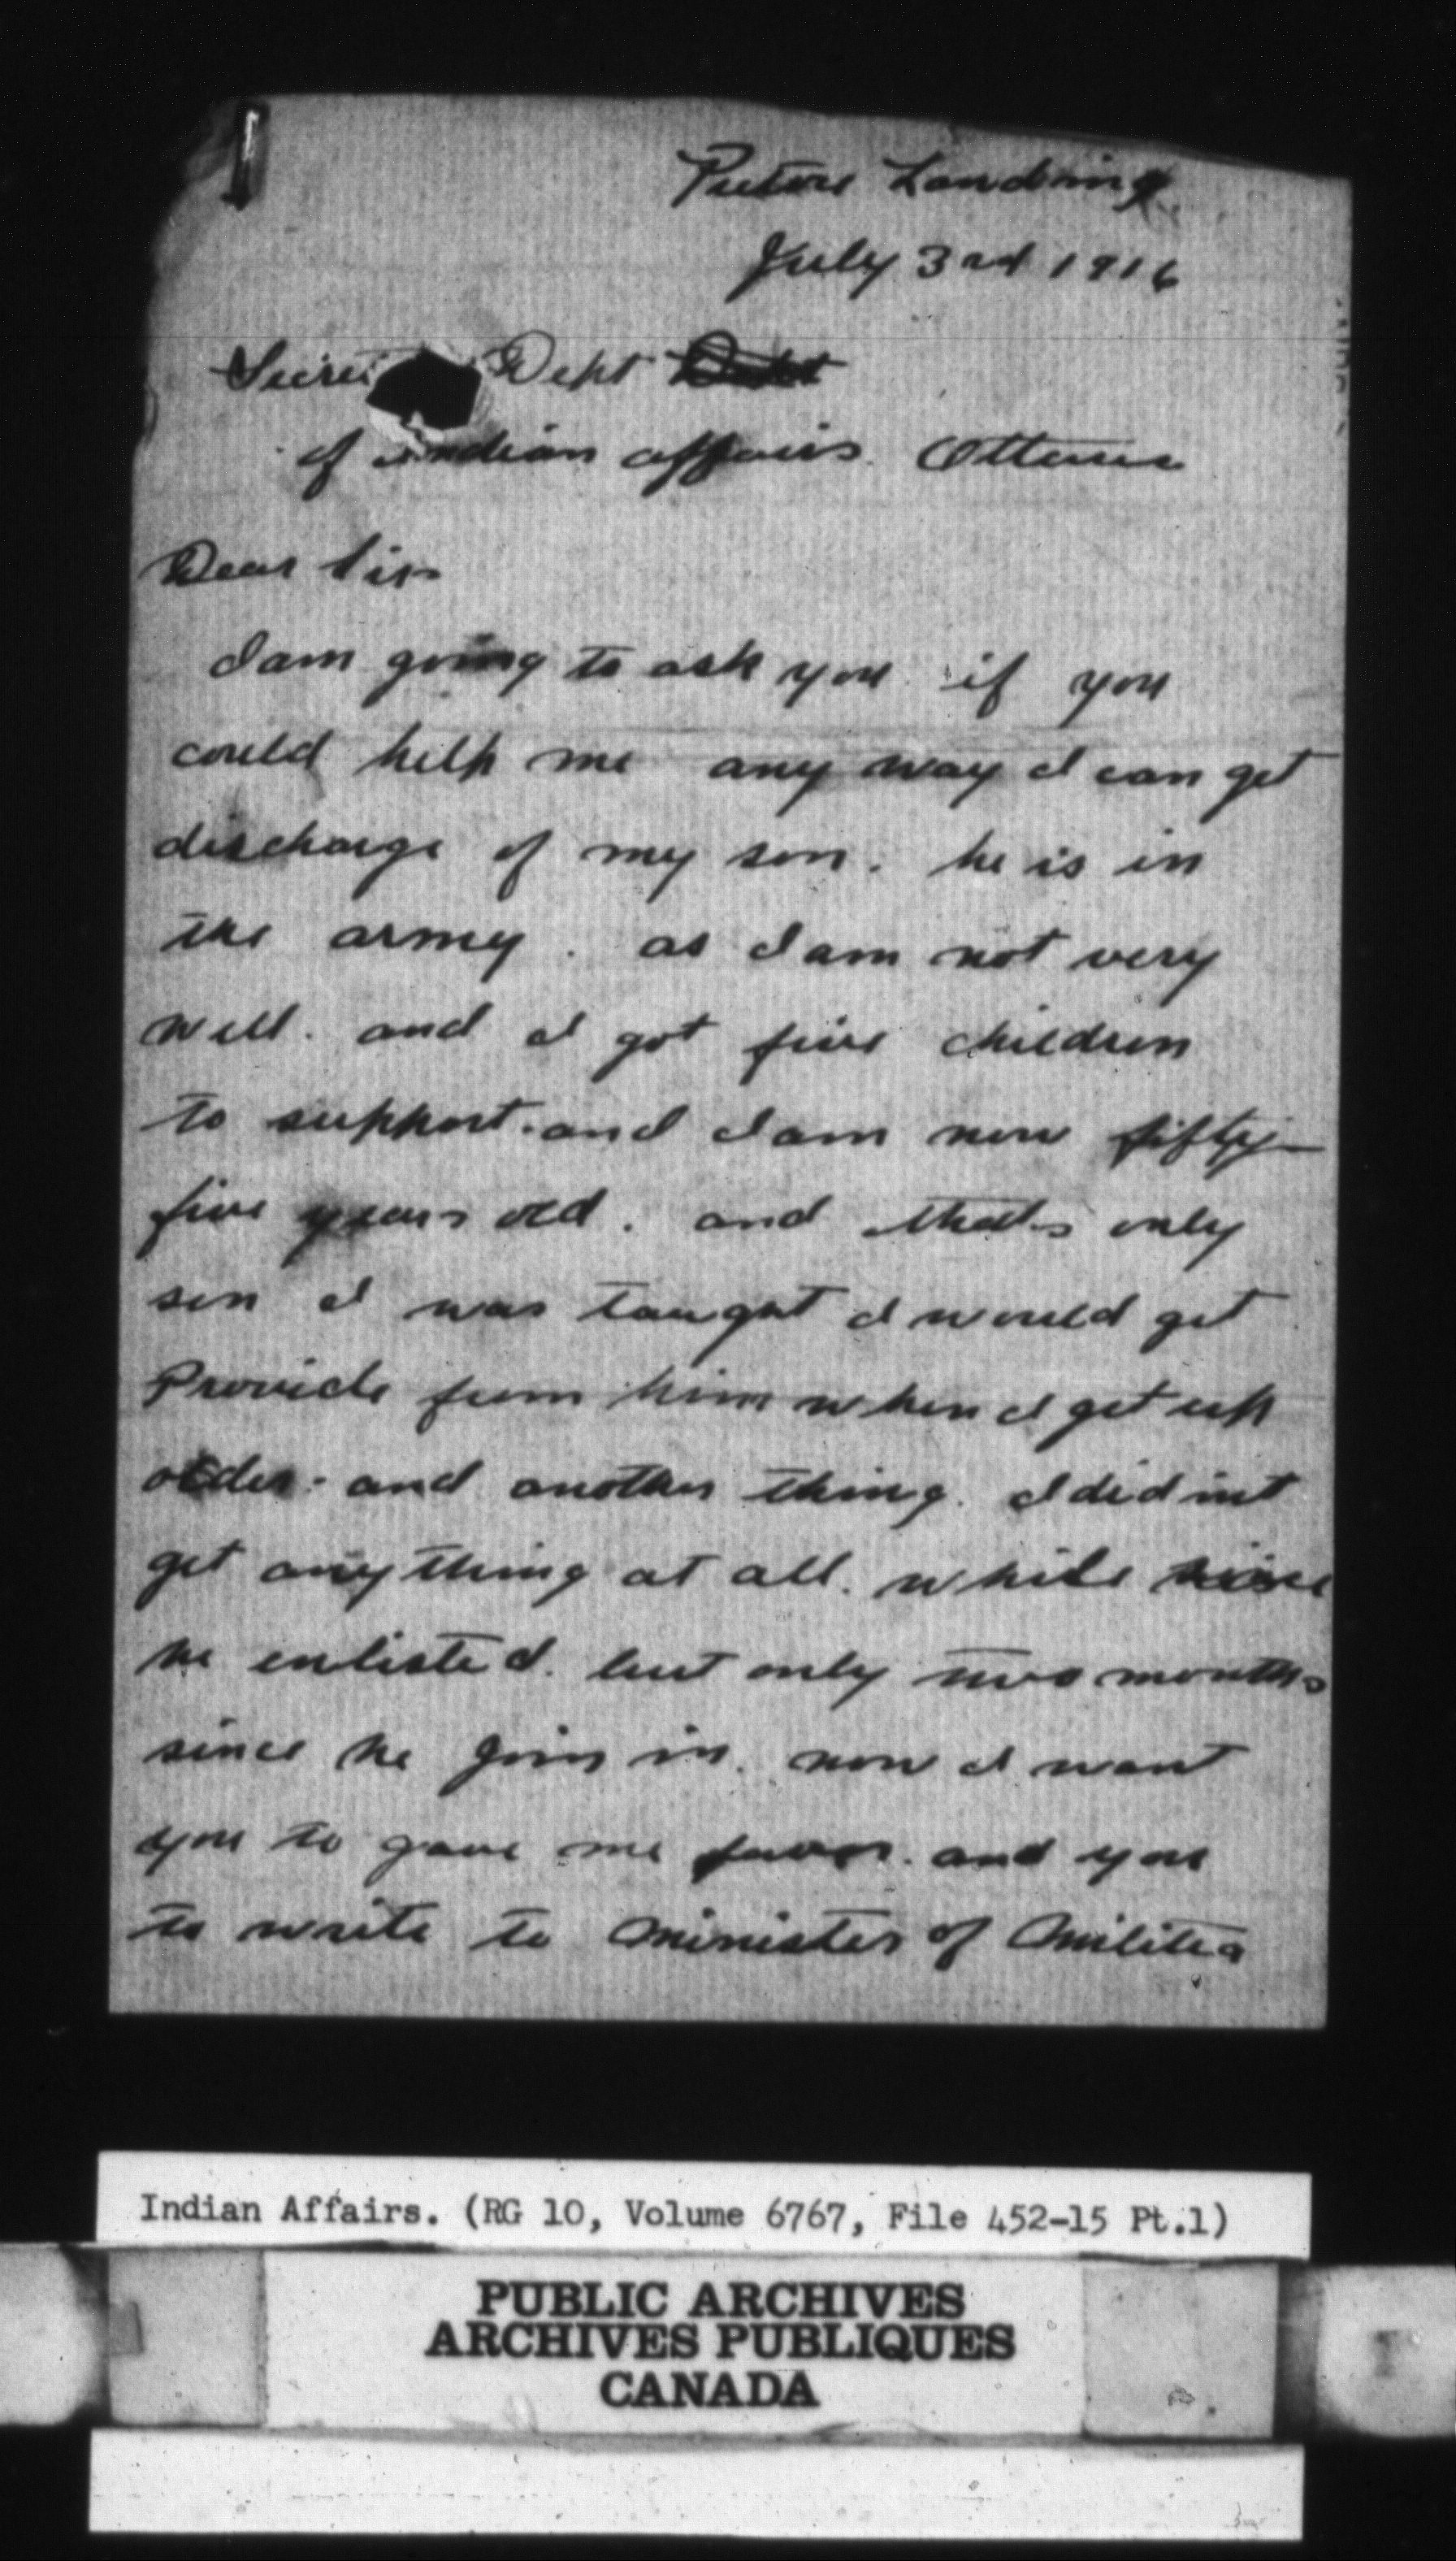 Pictou Landing
July 3rd 1916
Dept
of indian affairs. Ottawa
Dear Sir
I am going to ask you if you
could help me any way I can get
discharge of my son. he is in
the army. as I am not very
well. and I got five children
to support. and I am now fifty
five years old. and thats only
son I was taught I would get
Provide from him when I get up
older. and another thing. I did not
get any thing at all. while
he enlisted. but only two months
since he join in. now I want
you to gave me favor. and you
to write to Minister of Militia
Indian Affairs. (RG 10, Volume 6767, File 452-15 Pt.1)
PUBLIC ARCHIVES
ARCHIVES PUBLIQUES
CANADA